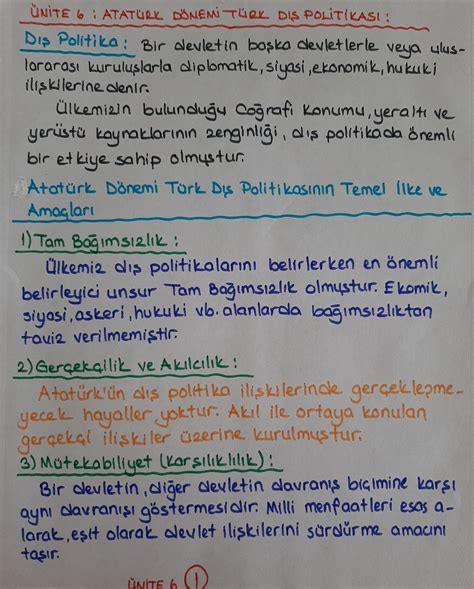 ÜNİTE 6 : ATATÜRK DÖNEMİ TÜRK DIŞ POLİTİKASI :
Dış Politika : Bir devletin başka devletlerle veya ulus-
lararası kuruluşlarla diplomatik, siyasi, ekonomik, hukuki
ilişkilerine denir.
Ülkemizin bulunduğu Coğrafi konumu, yeraltı ve
yerüstü kaynaklarının zenginliği, dış politikada önemli
bir etkiye sahip olmuştur.
Atatürk Dönemi Türk Dış Politikasının Temel İlke ve
Amaçları
1) Tam Bağımsızlık :
Ülkemiz dış politikalarını belirlerken en önemli
belirleyici unsur Tam Bağımsızlık olmuştur. Ekomik,
siyasi, askeri, hukuki vb. alanlarda bağımsızlıktan
taviz verilmemiştir.
2) Gerçekçilik ve Akılcılık :
Atatürk'ün dış politika ilişkilerinde gerçekleşme-
yecek hayaller yoktur. Akıl ile ortaya konulan
gerçekçi ilişkiler üzerine kurulmuştur.
3) Mütekabiliyet (Karşılıklılık) :
Bir devletin, diğer devletin davranış biçimine karşı
aynı davranışı göstermesidir. Milli menfaatleri esas a-
larak, eşit olarak devlet ilişkilerini sürdürme amacını
taşır.
ÜNİTE 6 1